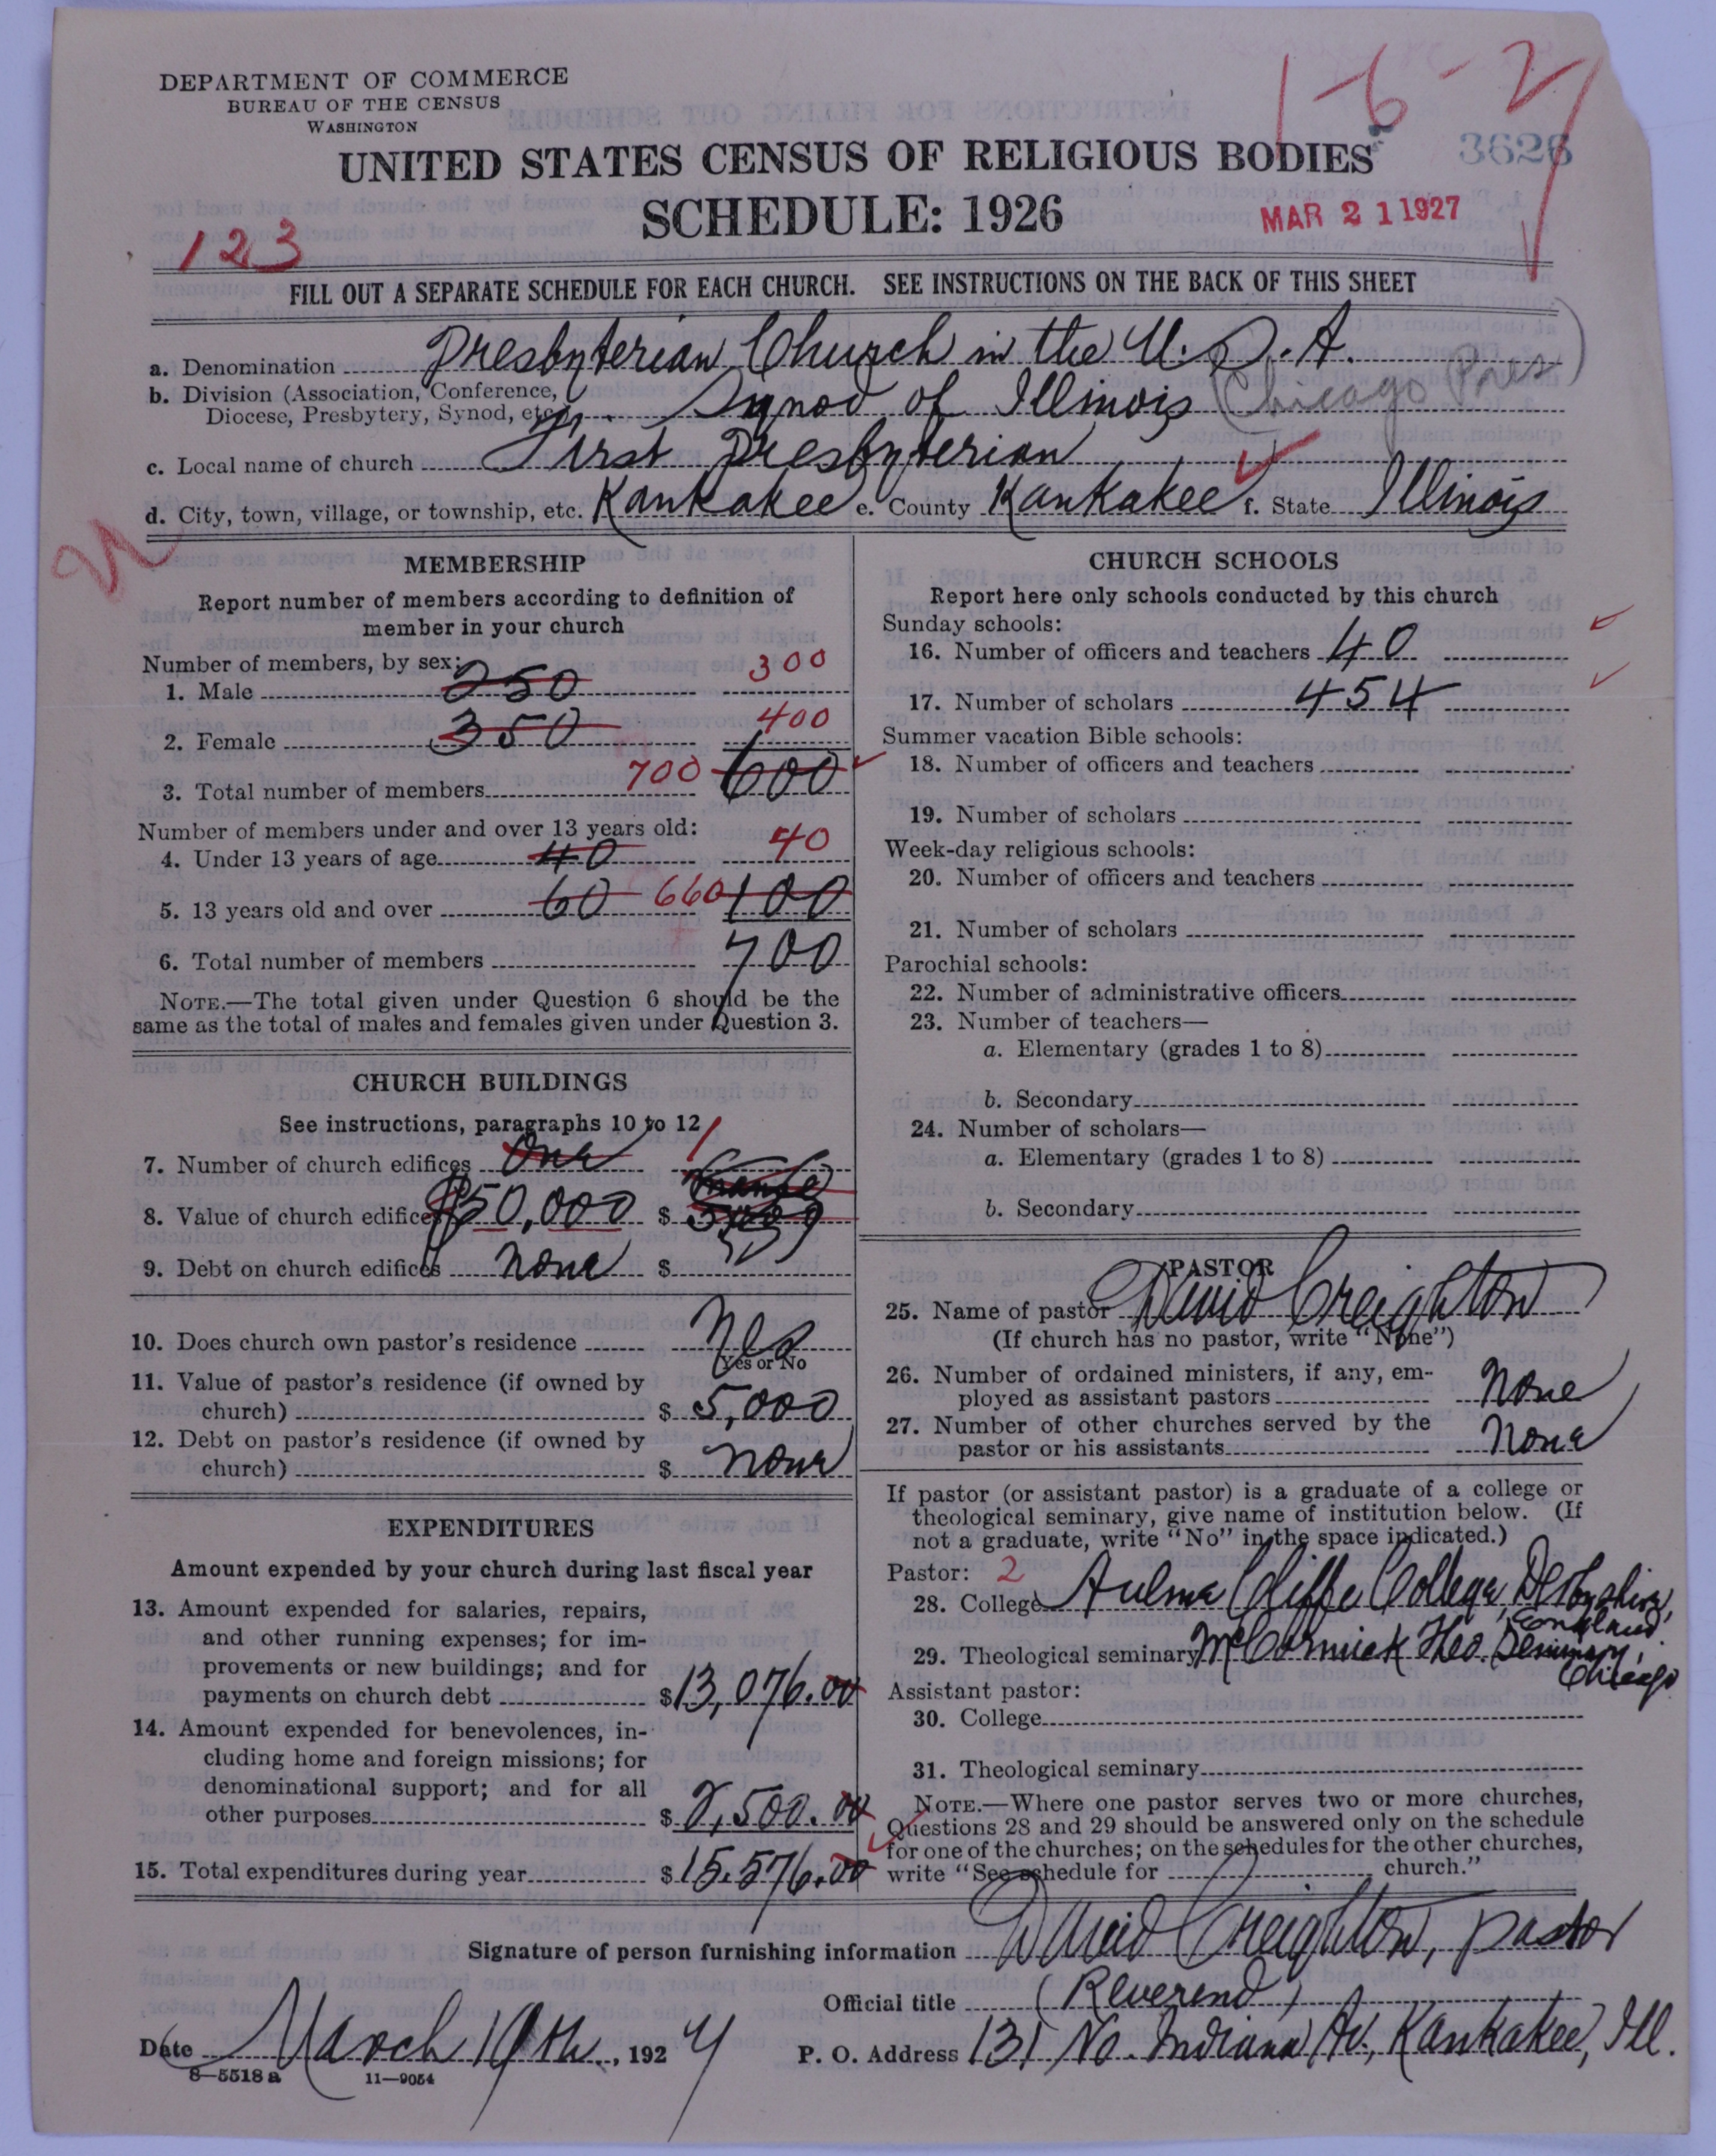 DEPARTMENT OF COMMERCE
BUREAU OF THE CENSUS
WASHINGTON
1-6-27
3626
UNITED STATES CENSUS OF RELIGIOUS BODIES
SCHEDULE: 1926
MAR 21 1927
123
FILL OUT A SEPARATE SCHEDULE FOR EACH CHURCH. SEE INSTRUCTIONS ON THE BACK OF THIS SHEET
a. Denomination Presbyterian Church in the U.S.A.
b. Division (Association, Conference,
Diocese, Presbytery, Synod, etc.) Synod of Illinois (Chicago Pres)
c. Local name of church First Presbyterian
d. City, town, village, or township, etc. Kankakee e. County Kankakee f. State Illinois
MEMBERSHIP
Report number of members according to definition of
member in your church
Number of members, by sex:
1. Male 250 300
2. Female 350 400
3. Total number of members 700 600
Number of members under and over 13 years old:
4. Under 13 years of age 40 40
5. 13 years old and over 60 660 100
6. Total number of members 700
NOTE.—The total given under Question 6 should be the
same as the total of males and females given under Question 3.
CHURCH BUILDINGS
See instructions, paragraphs 10 to 12
7. Number of church edifices One 1
8. Value of church edifices $50,000 $
9. Debt on church edifices none $
10. Does church own pastor's residence Yes
Yes or No
11. Value of pastor's residence (if owned by
church) $ 5,000
12. Debt on pastor's residence (if owned by
church) $ none
EXPENDITURES
Amount expended by your church during last fiscal year
13. Amount expended for salaries, repairs,
and other running expenses; for im-
provements or new buildings; and for
payments on church debt $13,076.00
14. Amount expended for benevolences, in-
cluding home and foreign missions; for
denominational support; and for all
other purposes $ 2,500.00
15. Total expenditures during year $15.576.00
CHURCH SCHOOLS
Report here only schools conducted by this church
Sunday schools:
16. Number of officers and teachers 40
17. Number of scholars 454
Summer vacation Bible schools:
18. Number of officers and teachers
19. Number of scholars
Week-day religious schools:
20. Number of officers and teachers
21. Number of scholars
Parochial schools:
22. Number of administrative officers
23. Number of teachers—
a. Elementary (grades 1 to 8)
b. Secondary
24. Number of scholars—
a. Elementary (grades 1 to 8)
b. Secondary
PASTOR
25. Name of pastor David Creighton
(If church has no pastor, write "None")
26. Number of ordained ministers, if any, em-
ployed as assistant pastors None
27. Number of other churches served by the
pastor or his assistants None
If pastor (or assistant pastor) is a graduate of a college or
theological seminary, give name of institution below. (If
not a graduate, write "No" in the space indicated.)
Pastor: 2
28. College Hulme Cliffe College, Derbyshire,
England
29. Theological seminary McCormick Theo. Seminary,
Chicago
Assistant pastor:
30. College
31. Theological seminary
NOTE.—Where one pastor serves two or more churches,
Questions 28 and 29 should be answered only on the schedule
for one of the churches; on the schedules for the other churches,
write "See schedule for church."
Signature of person furnishing information David Creighton, Pastor
Official title (Reverend)
Date March 19th, 1927
P. O. Address 131 No. Indiana Av., Kankakee, Ill.
8—5518 a 11—9054